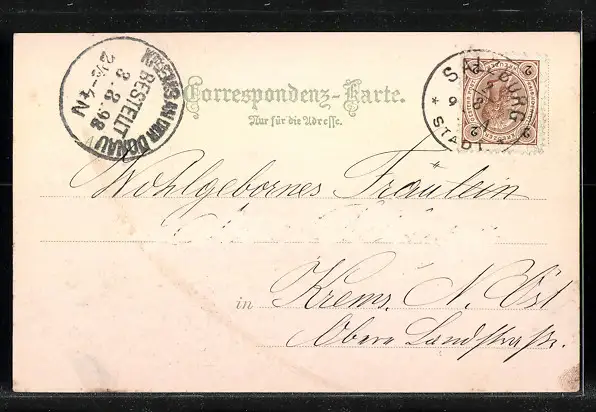 Correspondenz-Karte.
Nur für die Adresse.
BESTELLT
3.8.98
AN DER DONAU
SALZBURG
STADT
2 2
2 2
Wohlgebornes Fräulein
in Krems. N. Öst
Obere Landstraße.